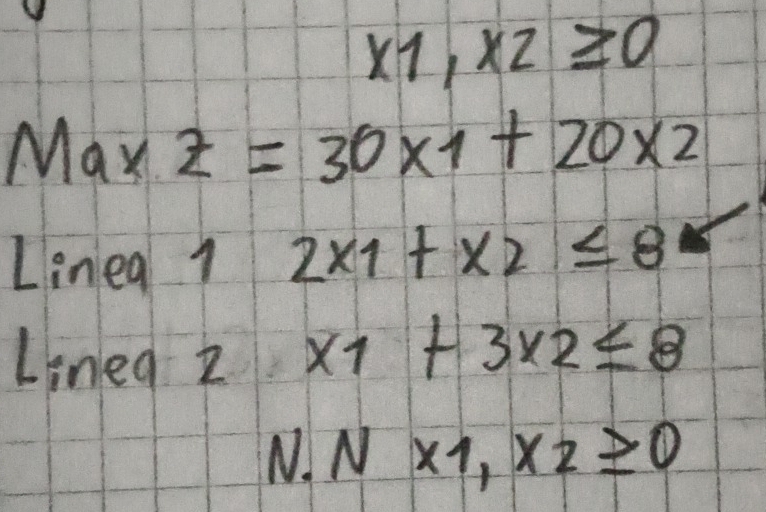 x1, x2 ≥0
Max z = 30x1 + 20x2
Linea 1 2x1 + x2 ≤ 8
Linea 2 x1 + 3x2 ≤ 8
N.N x1, x2 ≥0